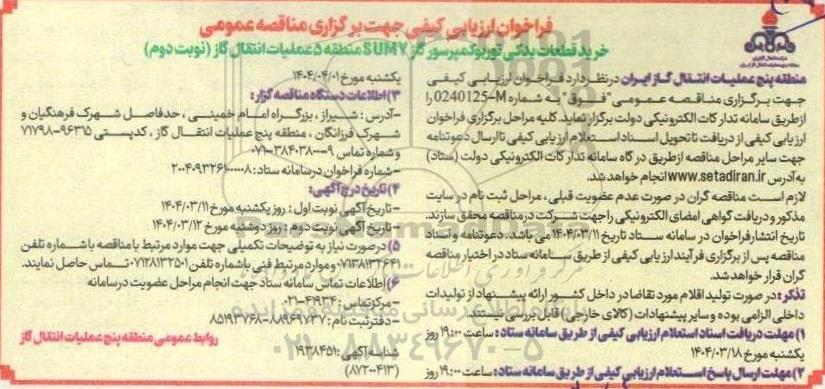 فراخوان ارزیابی کیفی جهت برگزاری مناقصه عمومی
خرید قطعات یدکی توربوکمپرسور گاز SUMY منطقه ۵ عملیات انتقال گاز (نوبت دوم)
منطقه پنج عملیات انتقال گاز ایران در نظر دارد فراخوان ارزیابی کیفی
جهت برگزاری مناقصه عمومی "فوق" به شماره 0240125-M را
از طریق سامانه تدارکات الکترونیکی دولت برگزار نماید. کلیه مراحل برگزاری فراخوان
ارزیابی کیفی از دریافت تا تحویل اسناد استعلام ارزیابی کیفی تا ارسال دعوتنامه
جهت سایر مراحل مناقصه از طریق درگاه سامانه تدارکات الکترونیکی دولت (ستاد)
به آدرس www.setadiran.ir انجام خواهد شد.
لازم است مناقصه گران در صورت عدم عضویت قبلی، مراحل ثبت نام در سایت
مذکور و دریافت گواهی امضای الکترونیکی را جهت شرکت در مناقصه محقق سازند.
تاریخ انتشار فراخوان در سامانه ستاد تاریخ ۱۴۰۴/۰۳/۱۱ می باشد. دعوتنامه و اسناد
مناقصه پس از برگزاری فرآیند ارزیابی کیفی از طریق سامانه ستاد در اختیار مناقصه
گران قرار خواهد شد.
تذکر: در صورت تولید اقلام مورد تقاضا در داخل کشور ارائه پیشنهاد از تولیدات
داخلی الزامی بوده و سایر پیشنهادات (کالای خارجی) قابل بررسی نیستند.
۱) مهلت دریافت اسناد استعلام ارزیابی کیفی از طریق سامانه ستاد: ساعت ۱۹:۰۰ روز
یکشنبه مورخ ۱۴۰۴/۰۳/۱۸
۲) مهلت ارسال پاسخ استعلام ارزیابی کیفی از طریق سامانه ستاد: ساعت ۱۹:۰۰ روز
یکشنبه مورخ ۱۴۰۴/۰۴/۰۱
۳) اطلاعات دستگاه مناقصه گزار:
-آدرس: شیراز، بزرگراه امام خمینی، حدفاصل شهرک فرهنگیان و
شهرک فرزانگان، منطقه پنج عملیات انتقال گاز، کدپستی ۹۶۳۱۵-۷۱۷۹۸
و شماره تماس ۹-۳۸۴۰۳۸۰۰-۰۷۱
-شماره فراخوان در سامانه ستاد: ۲۰۰۴۰۹۳۲۶۱۰۰۰۰۰۸
۴) تاریخ درج آگهی:
-تاریخ آگهی نوبت اول: روز یکشنبه مورخ ۱۴۰۴/۰۳/۱۱
-تاریخ آگهی نوبت دوم: روز دوشنبه مورخ ۱۴۰۴/۰۳/۱۲
۵) در صورت نیاز به توضیحات تکمیلی جهت موارد مرتبط با مناقصه با شماره تلفن
۰۷۱۳۸۱۳۲۶۴۱ و موارد مرتبط فنی با شماره تلفن ۰۷۱۳۸۱۳۲۵۰۱ تماس حاصل نمایند.
۶) اطلاعات تماس سامانه ستاد جهت انجام مراحل عضویت در سامانه
-مرکز تماس: ۴۱۹۳۴-۰۲۱
-دفتر ثبت نام: ۸۸۹۶۹۷۳۷-۸۵۱۹۳۷۶۸
شناسه آگهی: ۱۹۳۸۴۵۱
(۸۷۲۰۰۴۱۳)
روابط عمومی منطقه پنج عملیات انتقال گاز
۰۲۱-۸۸۳۴۹۶۷۰-۵